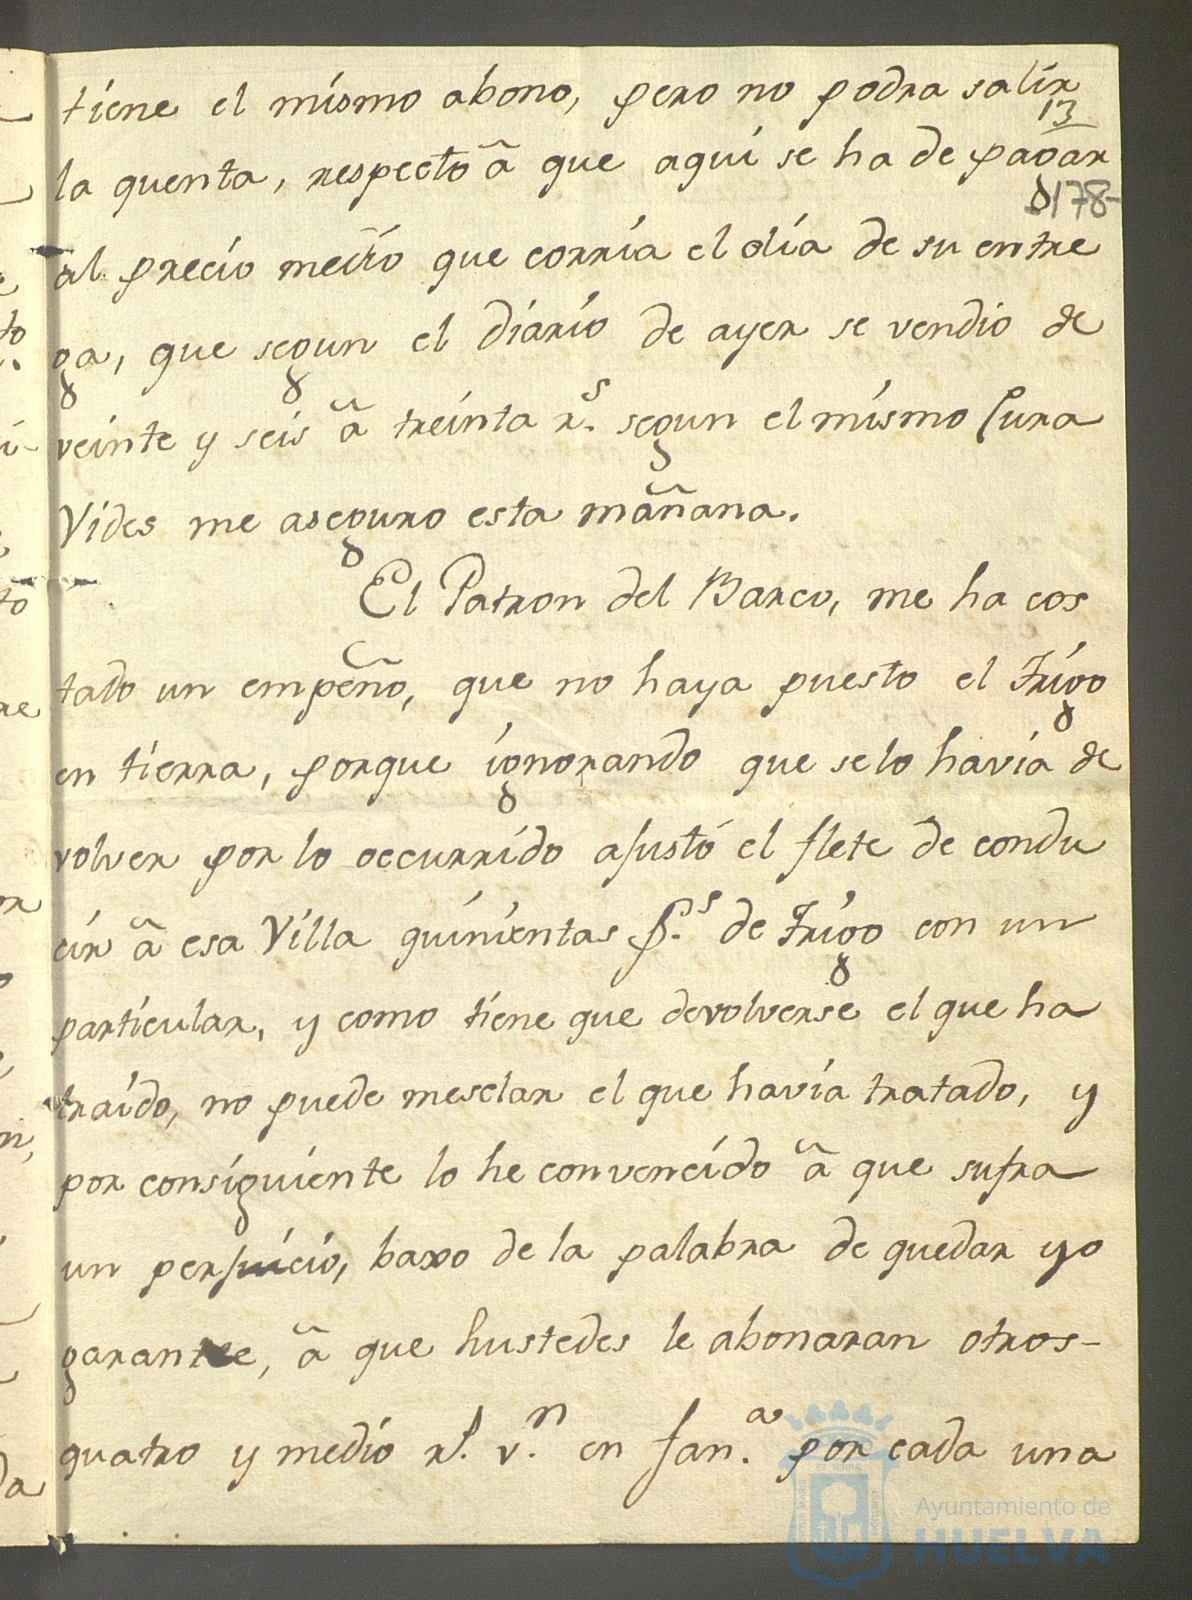 tiene el mismo abono, pero no podra salir
13
la quenta, respecto â que aqui se ha de pagar
178
al precio medio que corria el dia de su entre
ga, que segun el diario de ayer se vendio de
veinte y seis â treinta r.s segun el mismo Cura
Vides me aseguro esta mañana.
El Patron del Barco, me ha cos
tado un empeño, que no haya puesto el trigo
en tierra, porque ignorando que selo havia de
volver por lo occurrido ajustó el flete de condu
cir â esa Villa quinientas f.s de trigo con un
particular, y como tiene que devolverse el que ha
traido, no puede mesclar el que havia tratado, y
por consiguiente lo he convencido â que sufra
un perjuicio, baxo de la palabra de quedar yo
garante, â que hustedes le abonaran otros-
quatro y medio r.s v.n en fan.a por cada una
Ayuntamiento de
HUELVA